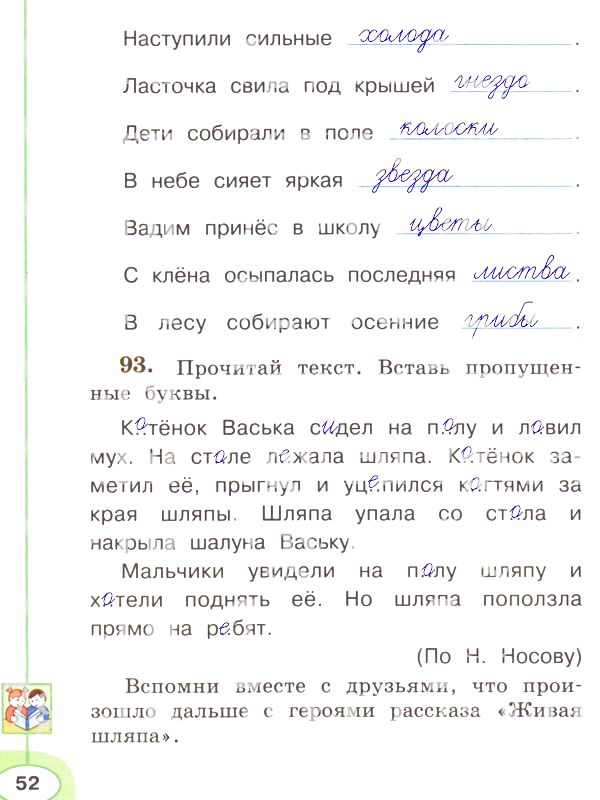 Наступили сильные холода.
Ласточка свила под крышей гнездо.
Дети собирали в поле колоски.
В небе сияет яркая звезда.
Вадим принёс в школу цветы.
С клёна осыпалась последняя листва.
В лесу собирают осенние грибы.
93. Прочитай текст. Вставь пропущен-
ные буквы.
Котёнок Васька сидел на полу и ловил
мух. На столе лежала шляпа. Котёнок за-
метил её, прыгнул и уцепился когтями за
края шляпы. Шляпа упала со стола и
накрыла шалуна Ваську.
Мальчики увидели на полу шляпу и
хотели поднять её. Но шляпа поползла
прямо на ребят.
(По Н. Носову)
Вспомни вместе с друзьями, что прои-
зошло дальше с героями рассказа «Живая
шляпа».
52